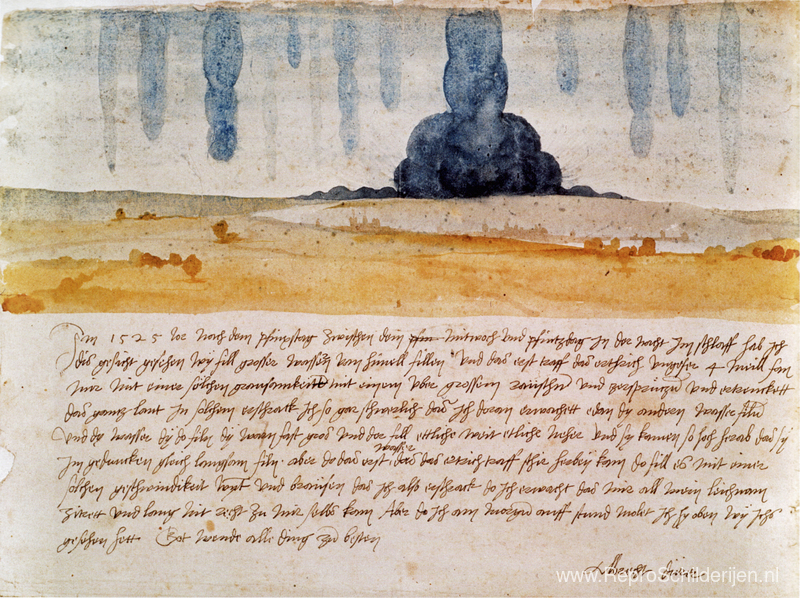 Im 1525 Jor nach dem pfinxstag zwischen dem pfin mitwoch und pfintzdag in der nacht im schlaff hab ich
dis gesicht gesehen wy fill grosser wassern vom himell fillen Und das erst traff das erthrich ungefer 4 meill fan
mir mit einer solchen grausamkeitt mit einem uber grossem raüschn und zersprützn und ertrenckett
das gantz lant In solchem erschrack ich so gar schwerlich das ich doran erwachett edan dy andern wasser filn
Und dy wasser dy do filn dy warn fast gros und der fill ettliche weit etliche neher und sy kamen so hoch herab das sy
im gedancken gleich langsam filn. aber do das erst wasser das das ertrich traff schir herbey kam do fill es mit einer
solchen geschwindikeit wynt und braüsen das ich also erschrack do ich erwacht das mir all mein leichnam
zitrett und lang nit recht zu mir selbs kam Aber do ich am morgen auff stund molet ich hy oben wy ichs
gesehen hett Got wende alle ding zu besten
Albrecht dürer
www.ReproSchilderijen.nl